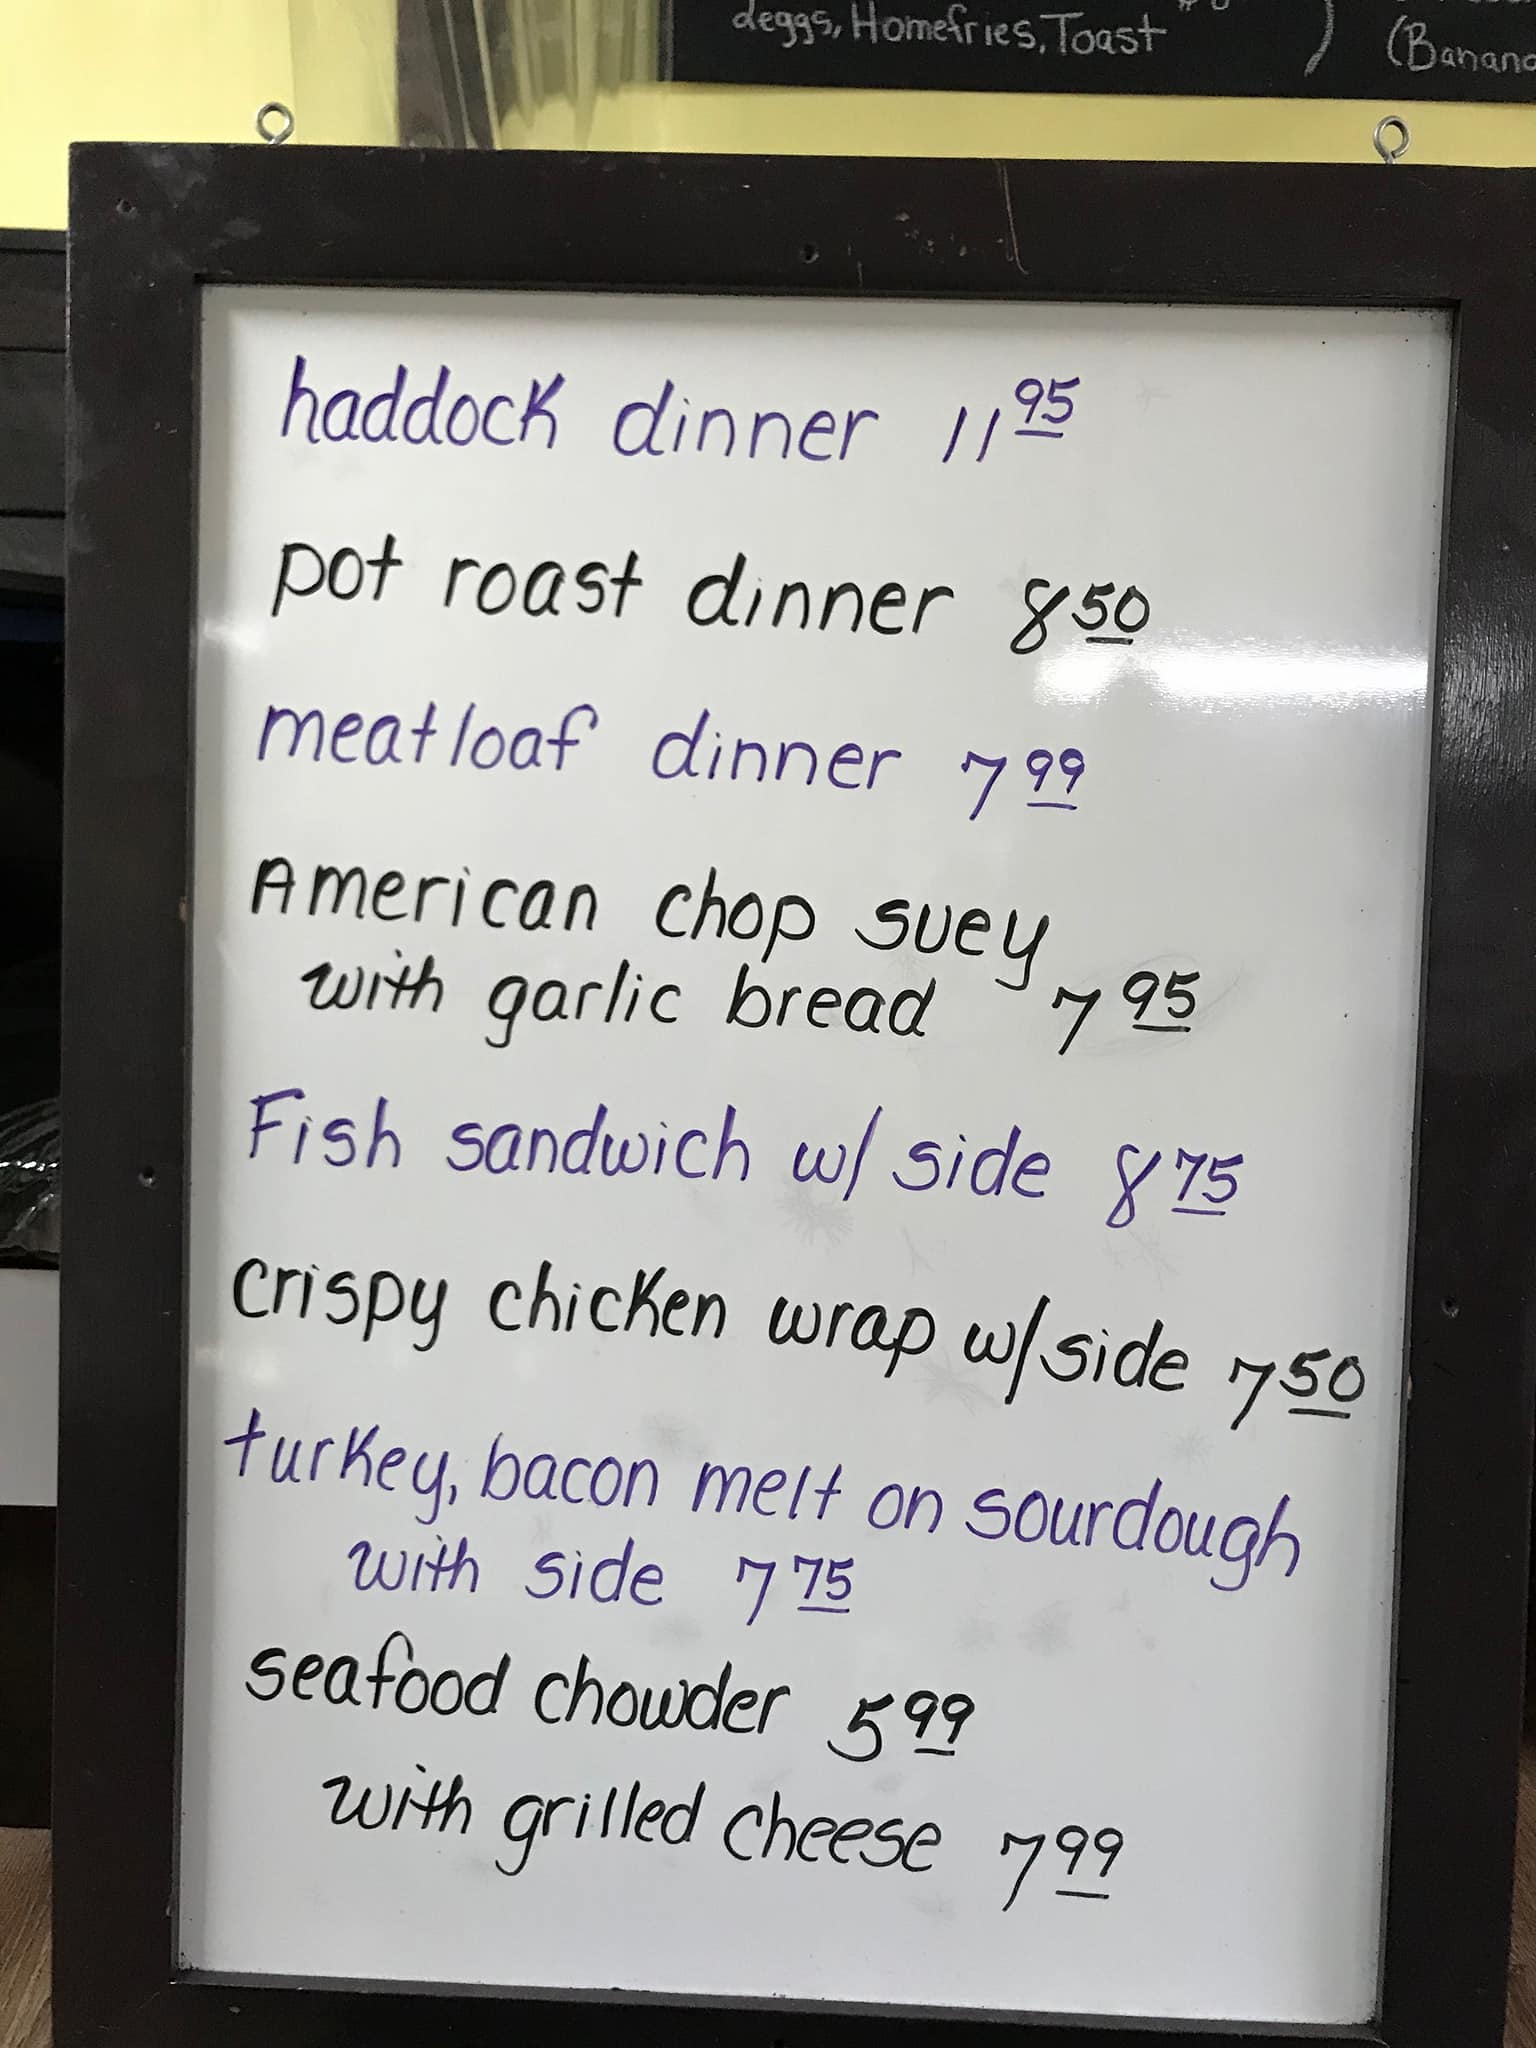 deggs, Homefries, Toast
(Banana
haddock dinner 11 95
pot roast dinner 8 50
meatloaf dinner 7 99
American chop suey
with garlic bread 7 95
Fish sandwich w/ side 8 75
crispy chicken wrap w/side 7 50
turkey, bacon melt on sourdough
with side 7 75
seafood chowder 5 99
with grilled cheese 7 99